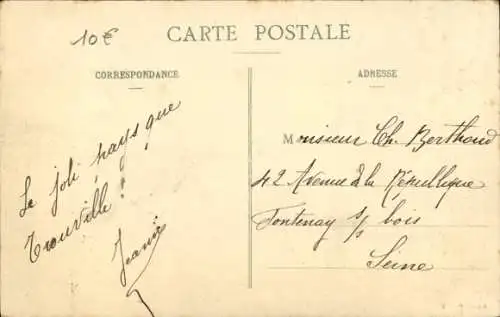 10€
CARTE POSTALE
CORRESPONDANCE
ADRESSE
Le joli pays que
Trouville !
Jeanne
Monsieur Ch. Berthaud
42 Avenue de la République
Fontenay s/s bois
Seine